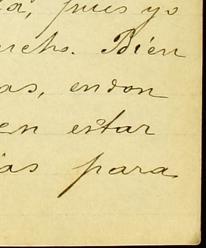 pues yo
Bién
as, endon
en estar
ias para